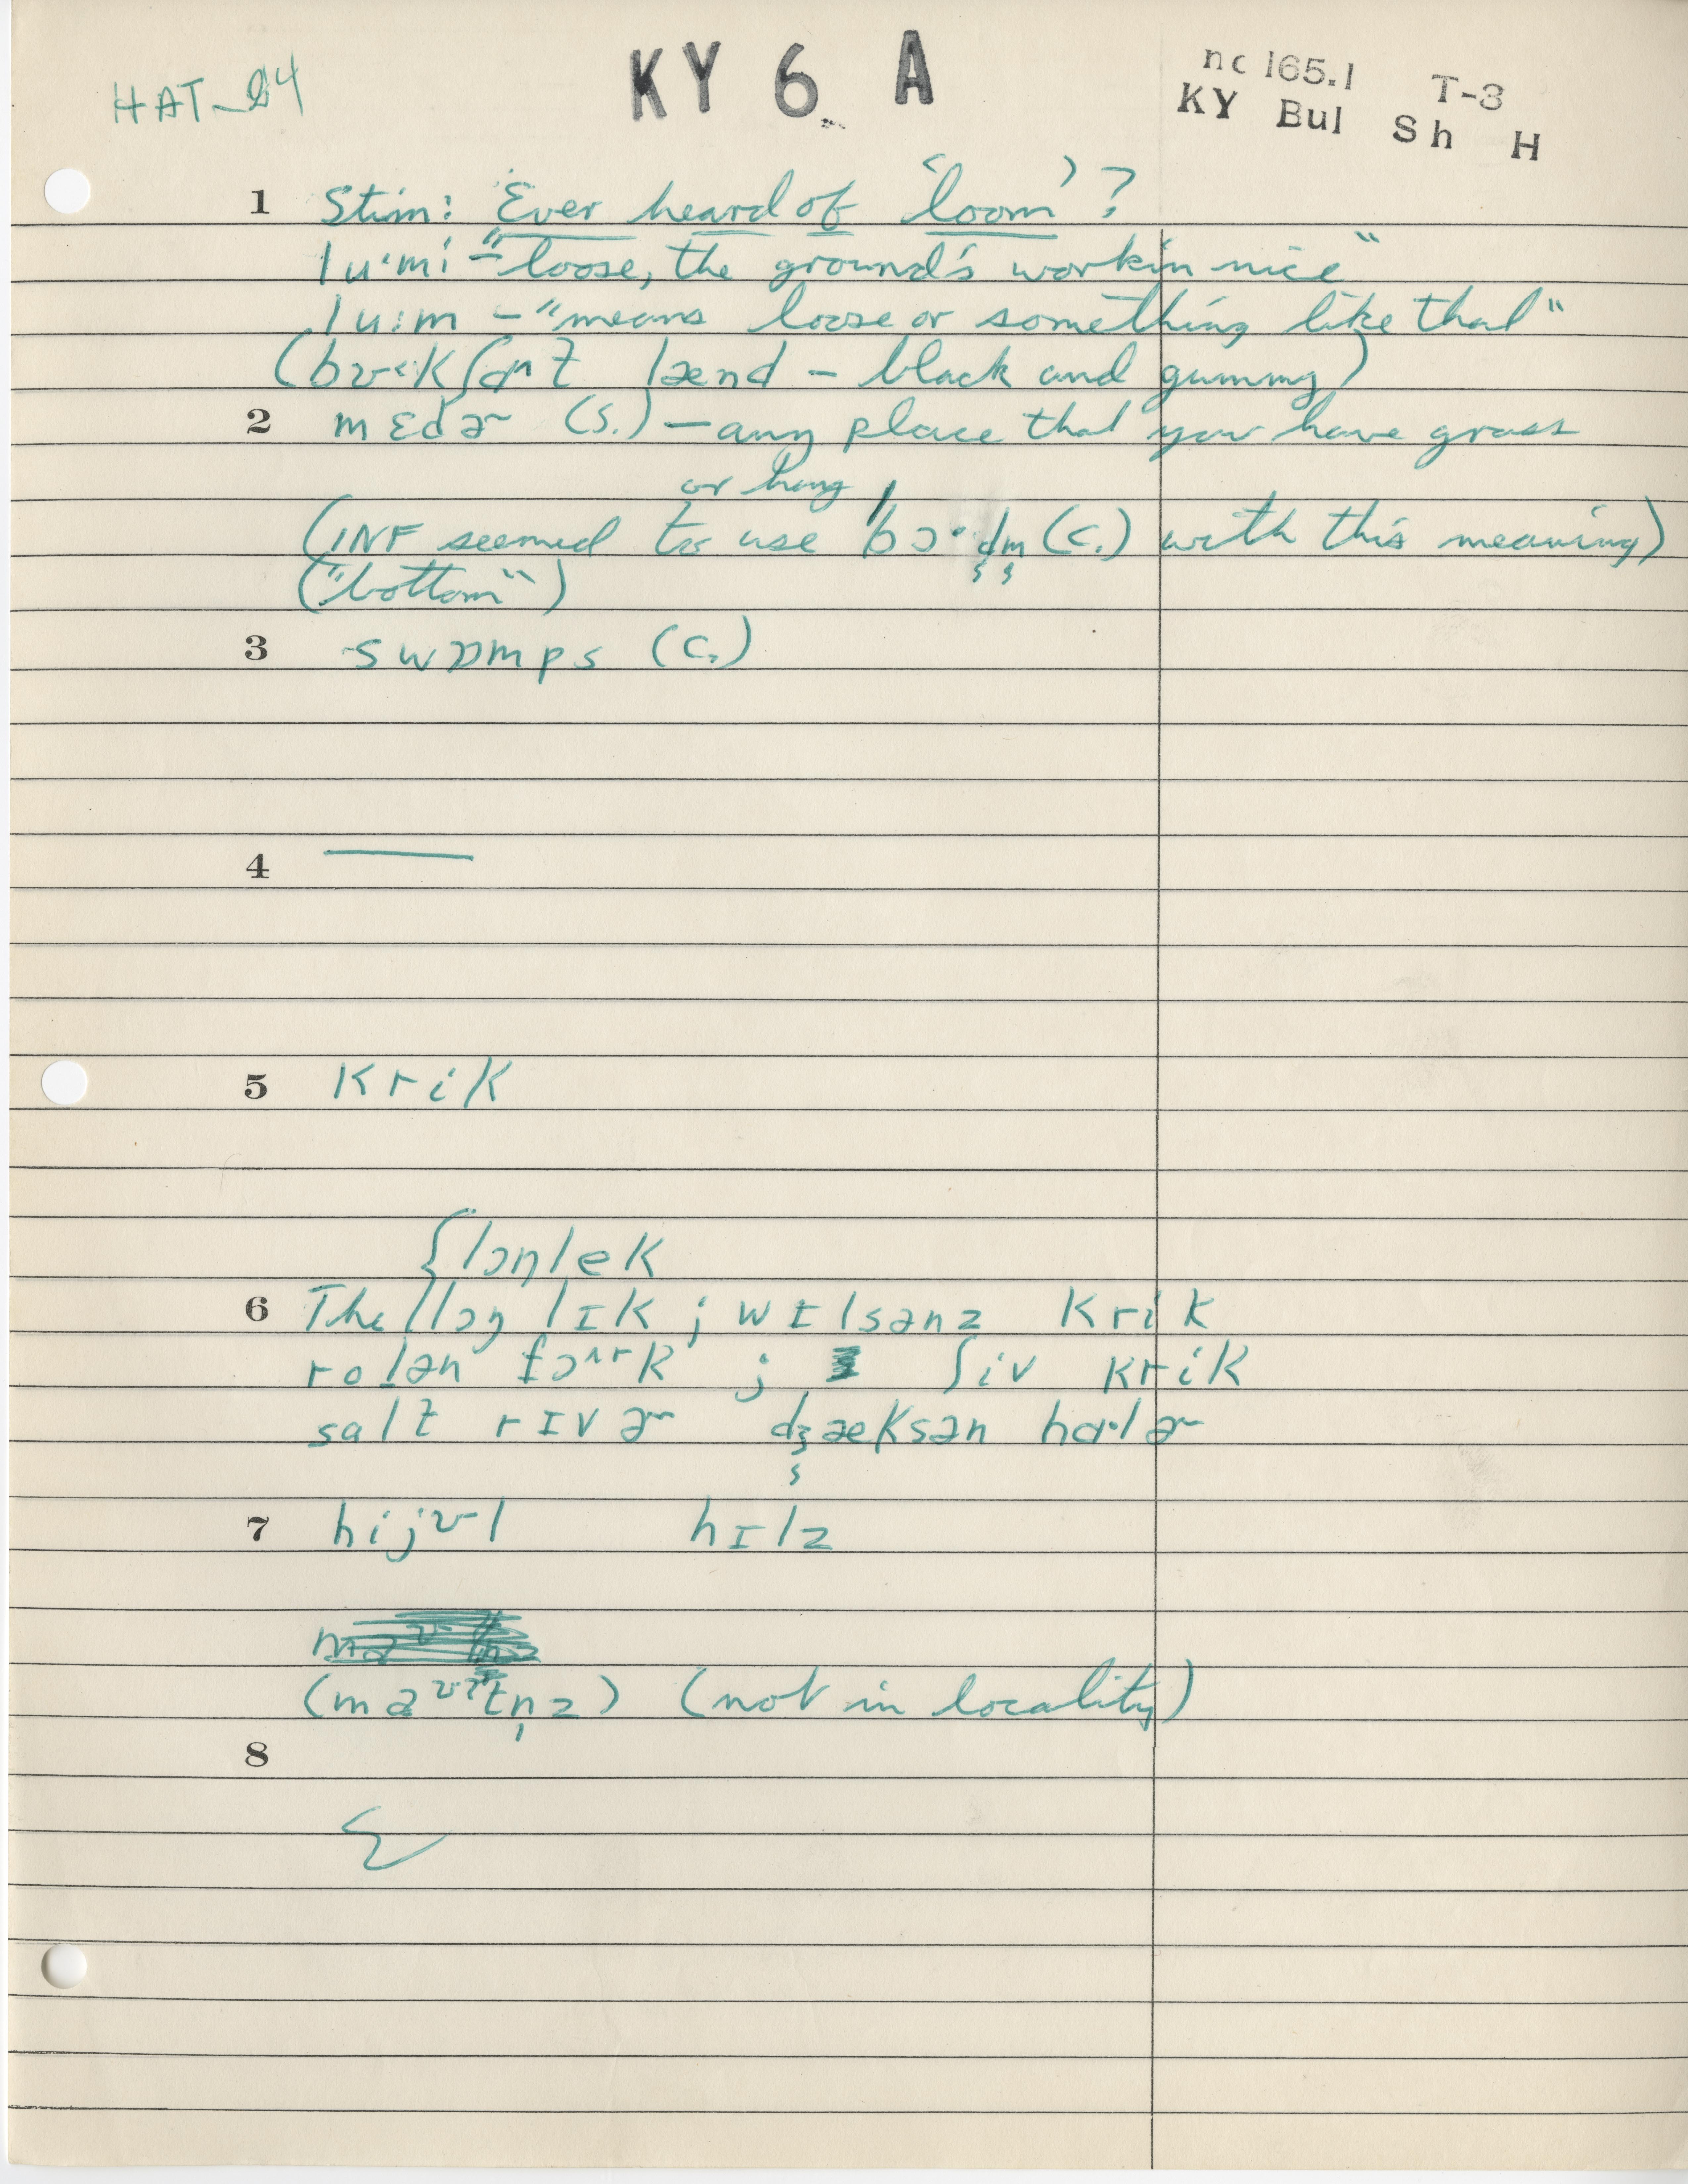 HAT_24
KY 6 A
nc 165.1 T-3
KY Bul Sh H
1 Stim: Ever heard of 'loom'?
lu·mi – "loose, the ground's workin nice"
lu:m – "means loose or something like that"
land – black and gummy)
2 mɛdɚ (S.) – any place that you have grass
or hang
(INF seemed to use (C.) with this meaning)
("bottom")
3 swɒmps (C.)
4 ——
5 krik
{lɔŋlek
6 The lɔŋ lɪk ; wɪlsənz krik
rolən fɔʌrk ; ʃiv krik
salt rɪvɚ dʒæksən hɑ·lɚ
7 hijʊl hɪlz
(not in locality)
8